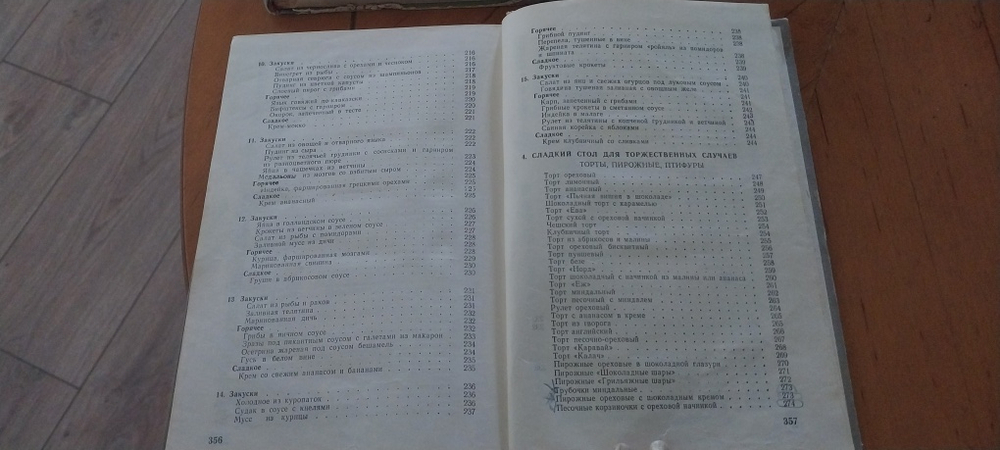 10. Закуски 216
Салат из чернослива с орехами и чесноком 216
Винегрет из рыбы 217
Отварная спаржа с соусом из шампиньонов 218
Пудинг из цветной капусты 218
Слоеный пирог с грибами 219
Горячее 219
Язык говяжий по-кавказски 220
с гарниром 220
Окорок, запеченный в тесте 221
Сладкое 221
Крем-кокко
11. Закуски 222
Салат из овощей и отварного языка 222
Пудинг из сыра
Рулет из телячьей грудинки с сосисками и гарниром
из разноцветного пюре 223
Яйца в чашечках из ветчины 224
Медальоны из мозгов со взбитым сыром 224
Горячее 225
Индейка, фаршированная грецкими орехами
Сладкое 225
Крем ананасный
12. Закуски 226
Яйца в голландском соусе 226
Крокеты из ветчины в зеленом соусе 227
Салат из рыбы с помидорами 227
Заливной мусс из дичи 228
Горячее 228
Курица, фаршированная мозгами 228
Маринованная свинина 229
Сладкое 230
Груши в абрикосовом соусе
13. Закуски 231
Салат из рыбы и раков 231
Заливная телятина 231
Маринованная дичь 232
Горячее 232
Грибы в яичном соусе 232
Зразы под пикантным соусом с галетами из макарон 233
Осетрина жареная под соусом бешамель 234
Гусь в белом вине 234
Сладкое 235
Крем со свежим ананасом и бананами 235
14. Закуски 236
Холодное из куропаток 236
Судак в соусе с кнелями 236
Мусс из курицы 237
356
Горячее 238
Грибной пудинг 238
Перепела, тушенные в вине 238
Жареная телятина с гарниром «ройяль» из помидоров
и шпината 238
Сладкое 239
Фруктовые крокеты 239
15. Закуски 240
Салат из яиц и свежих огурцов под луковым соусом 240
Говядина тушеная заливная с овощным желе 240
Горячее 241
Карп, запеченный с грибами 241
Грибные крокеты в сметанном соусе 241
Индейка в малаге 242
Рулет из телятины с копченой грудинкой и ветчиной 243
Свиная корейка с яблоками 243
Сладкое 244
Крем клубничный со сливками 244
4. СЛАДКИЙ СТОЛ ДЛЯ ТОРЖЕСТВЕННЫХ СЛУЧАЕВ
ТОРТЫ, ПИРОЖНЫЕ, ПТИФУРЫ
Торт ореховый 247
Торт лимонный 248
Торт ананасный 249
Торт «Пьяная вишня в шоколаде» 250
Шоколадный торт с карамелью 251
Торт «Ева» 252
Торт сухой с ореховой начинкой 253
Чешский торт 253
Клубничный торт 254
Торт из абрикосов и малины 255
Торт ореховый бисквитный 256
Торт пуншевый 257
Торт безе 258
Торт «Норд» 259
Торт шоколадный с начинкой из малины или ананаса 260
Торт «Еж» 261
Торт миндальный 262
Торт песочный с миндалем 263
Рулет ореховый 264
Торт с ананасом в креме 265
Торт из творога 265
Торт английский 266
Торт песочно-ореховый 267
Торт «Каравай» 268
Торт «Калач» 269
Пирожные ореховые в шоколадной глазури 270
Пирожные «Шоколадные шары» 271
Пирожные «Трильяжные шары» 272
Трубочки миндальные 273
Пирожные ореховые с шоколадным кремом 273
Песочные корзиночки с ореховой начинкой 274
357